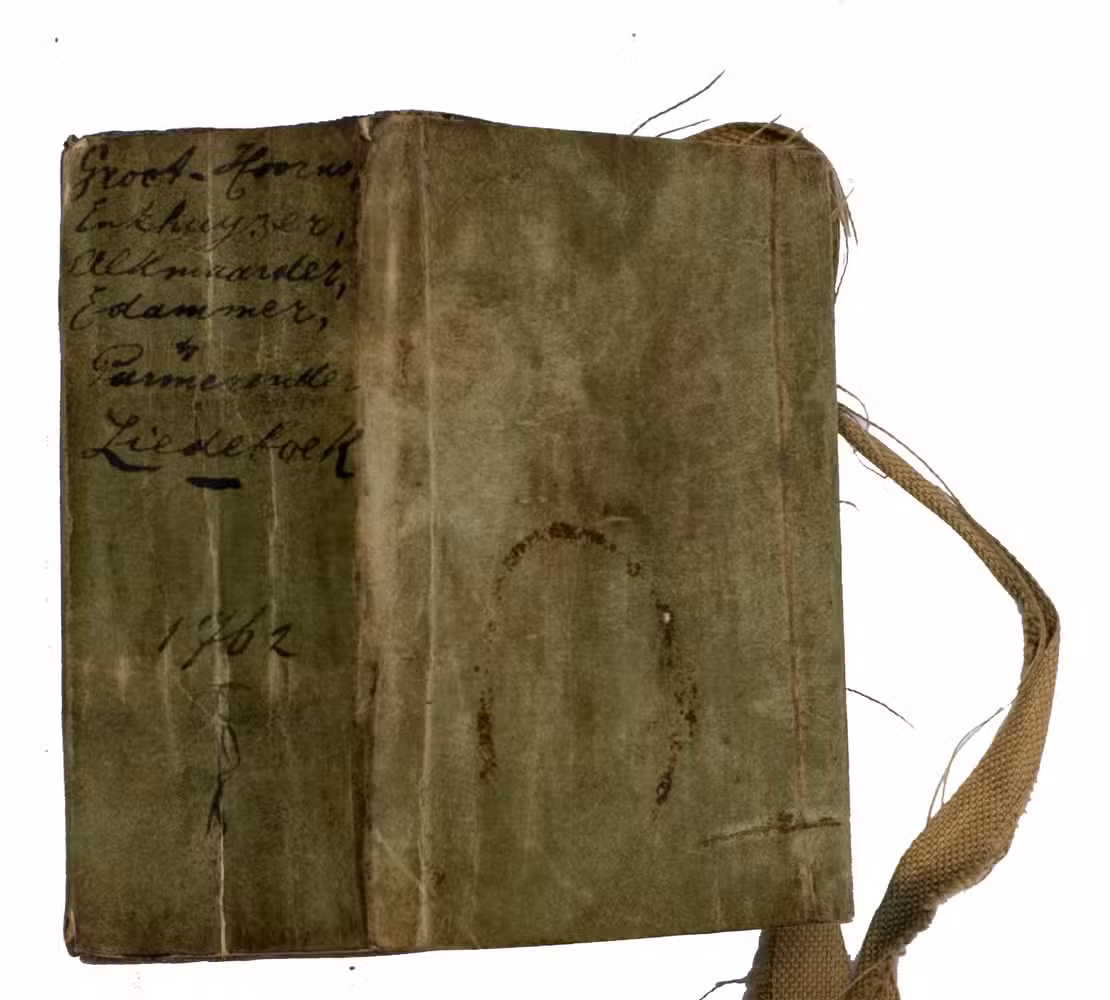 Groot-Hoorns,
Enkhuyzer,
Alkmaarder,
Edammer,
&
Purmerender
Liedeboek
1762